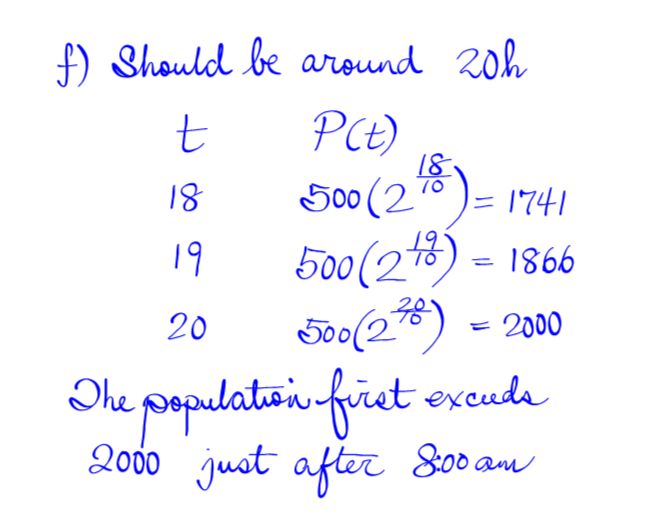 f) Should be around 20h
t P(t)
18 500(2^(18/10)) = 1741
19 500(2^(19/10)) = 1866
20 500(2^(20/10)) = 2000
The population first exceeds
2000 just after 8:00 am